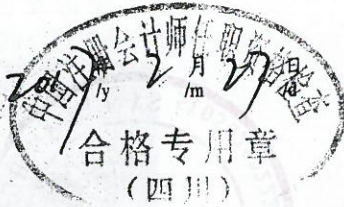 中国注册会计师任职资格检查
2019年2月27日
/y /m /d
合格专用章
（四川）